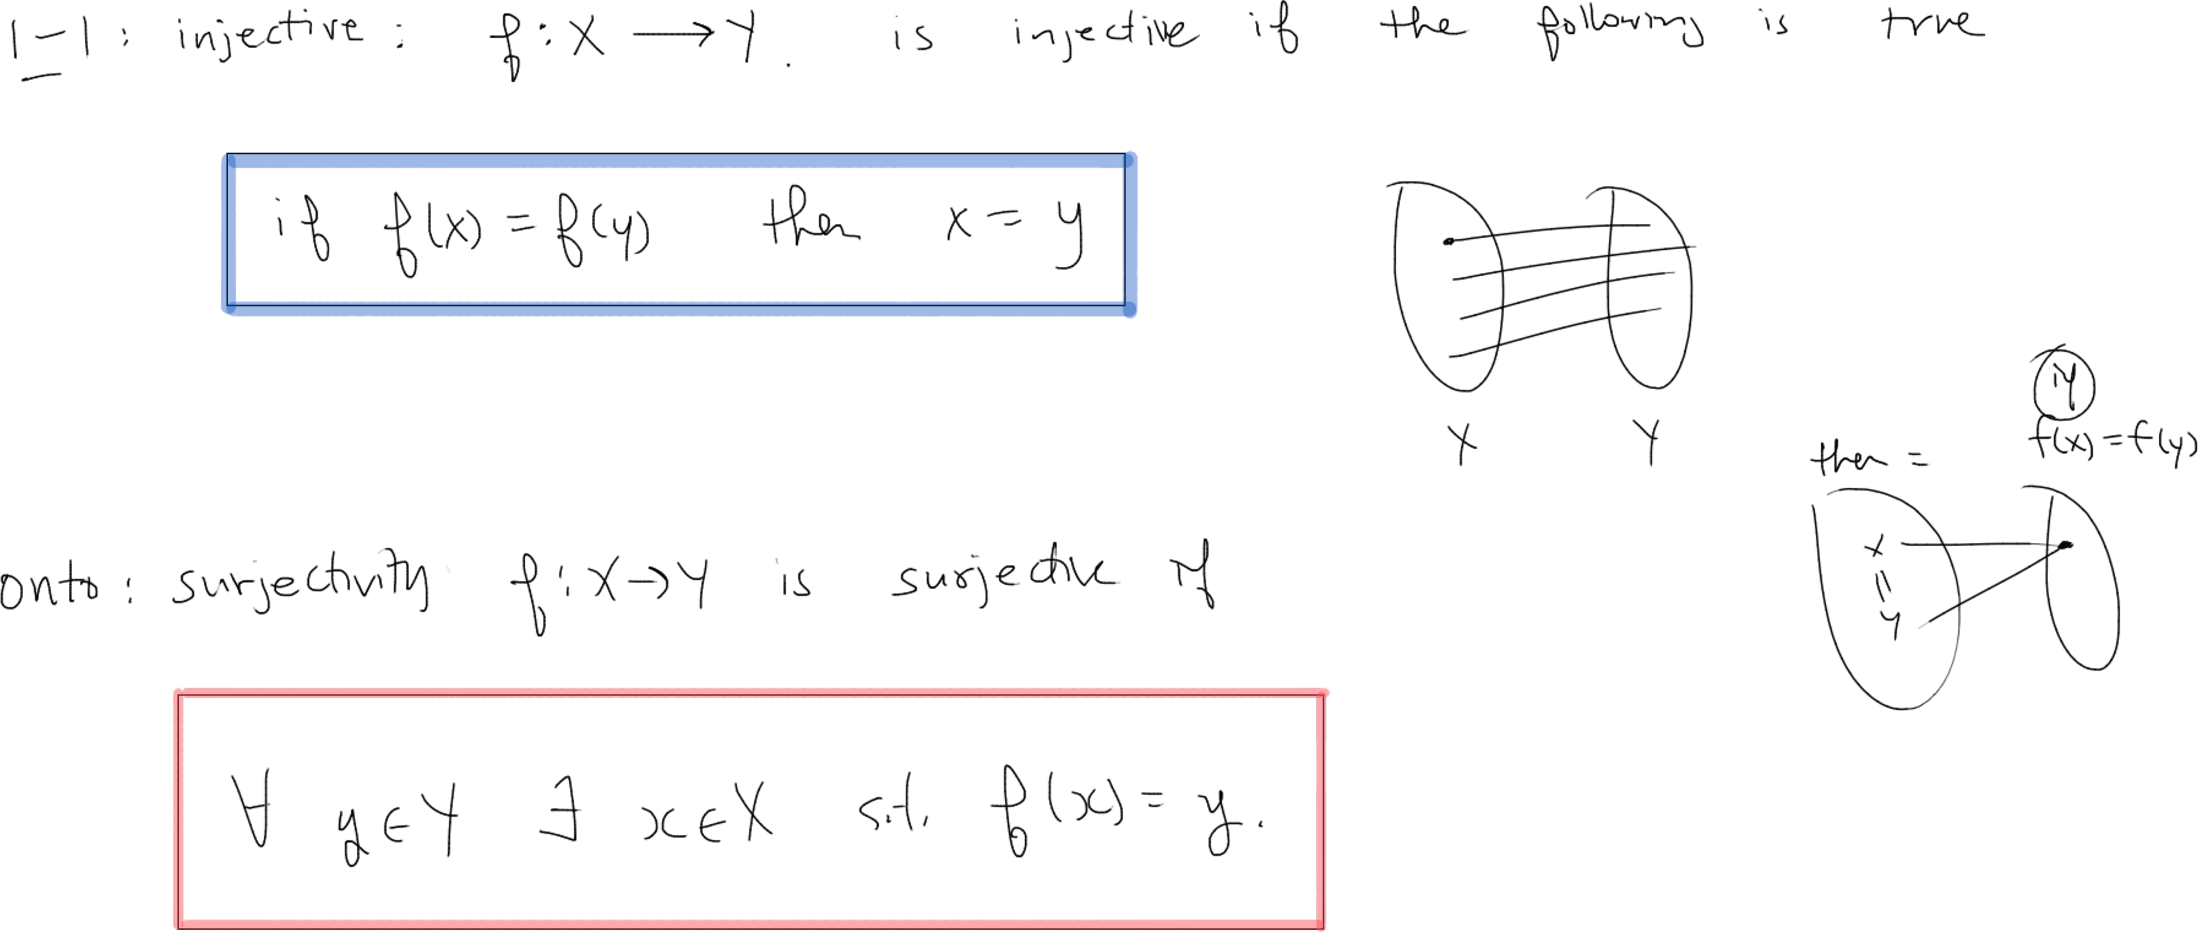 1-1: injective: f: X → Y. is injective if the following is true
if f(x) = f(y) then x = y
X Y
if
f(x) = f(y)
then =
x
=
y
onto: surjectivity f: X → Y is surjective if
∀ y ∈ Y ∃ x ∈ X s.t. f(x) = y.